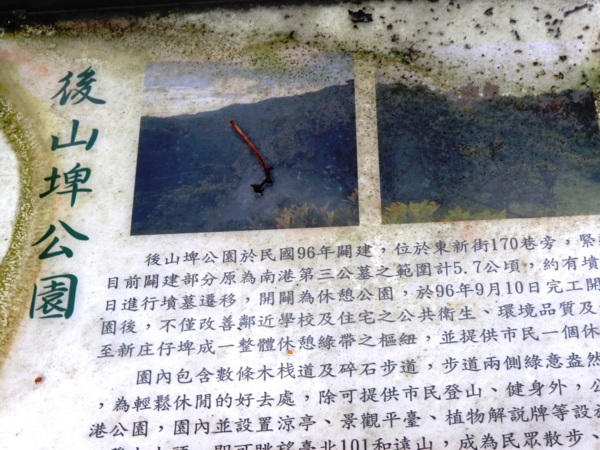 後山埤公園
後山埤公園於民國96年闢建，位於東新街170巷旁，緊
目前闢建部分原為南港第三公墓之範圍計5.7公頃，約有墳
日進行墳墓遷移，開闢為休憩公園，於96年9月10日完工開
園後，不僅改善鄰近學校及住宅之公共衛生、環境品質及
至新庄仔埤成一整體休憩綠帶之樞紐，並提供市民一個休
園內包含數條木棧道及碎石步道，步道兩側綠意盎然
，為輕鬆休閒的好去處，除可提供市民登山、健身外，
港公園，園內並設置涼亭、景觀平臺、植物解說牌等設
即可眺望臺北101和遠山，成為民眾散步、